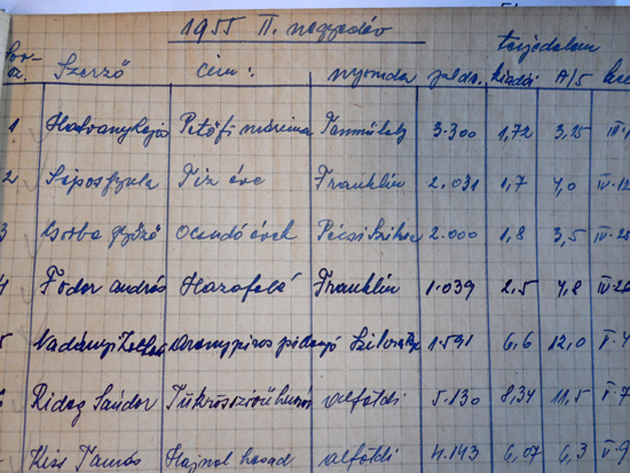 1955 II. negyedév
Sor- terjedelem
sz. Szerző Cím: nyomda példsz. kiadói A/5
1 Hatvany Lajos Petőfi máreima Tanműhely 3.300 1,72 3,25 III.
2 Sipos Gyula Tíz éve Franklin 2.031 1,7 4,0 IV.12
3 Csorba Győző Ocsudó évek Pécsi Szikra 2.000 1,8 3,5 IV.25
4 Fodor András Hazafelé Franklin 1.039 2,5 4,8 IV.26
5 Vadányi Zoltán Aranypiros pillangó 1.591 6,6 12,0 V.4
6 Rideg Sándor Tükrösszívű huszár Alföldi 5.130 8,34 11,5 V.7
Kiss Tamás Hajnal hasad Alföldi 4.143 6,07 6,3 V.9